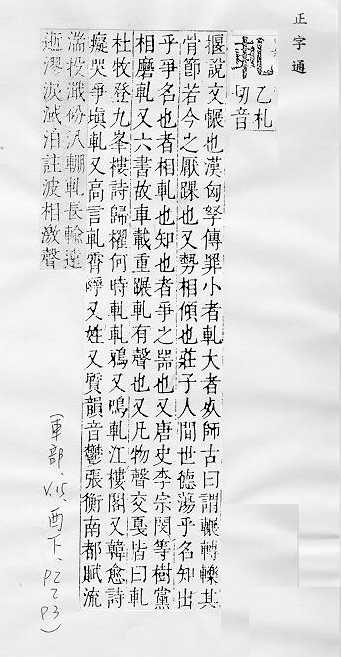 正字通
軋
乙札切音
揠說文輾也漢匈孥傳罪小者軋大者死師古曰謂輾轉轢其
骨節若今之厭踝也又勢相傾也莊子人間世德蕩乎名知出
乎爭名也者相軋也知也者爭之器也又唐史李宗閔等樹黨
相磨軋又六書故車載重蹍軋有聲也又凡物聲交戛皆曰軋
杜牧登九峯樓詩歸櫂何時軋軋鴉又鳴軋江樓閣又韓愈詩
癡哭爭填軋又高言軋霄崢又姓又質韻音鬱張衡南都賦流
湍投濈汾汎輣軋長輸遠
逝漻淚淢汨註波相激聲
(車部, V.15, 酉下, P2乙 P3)